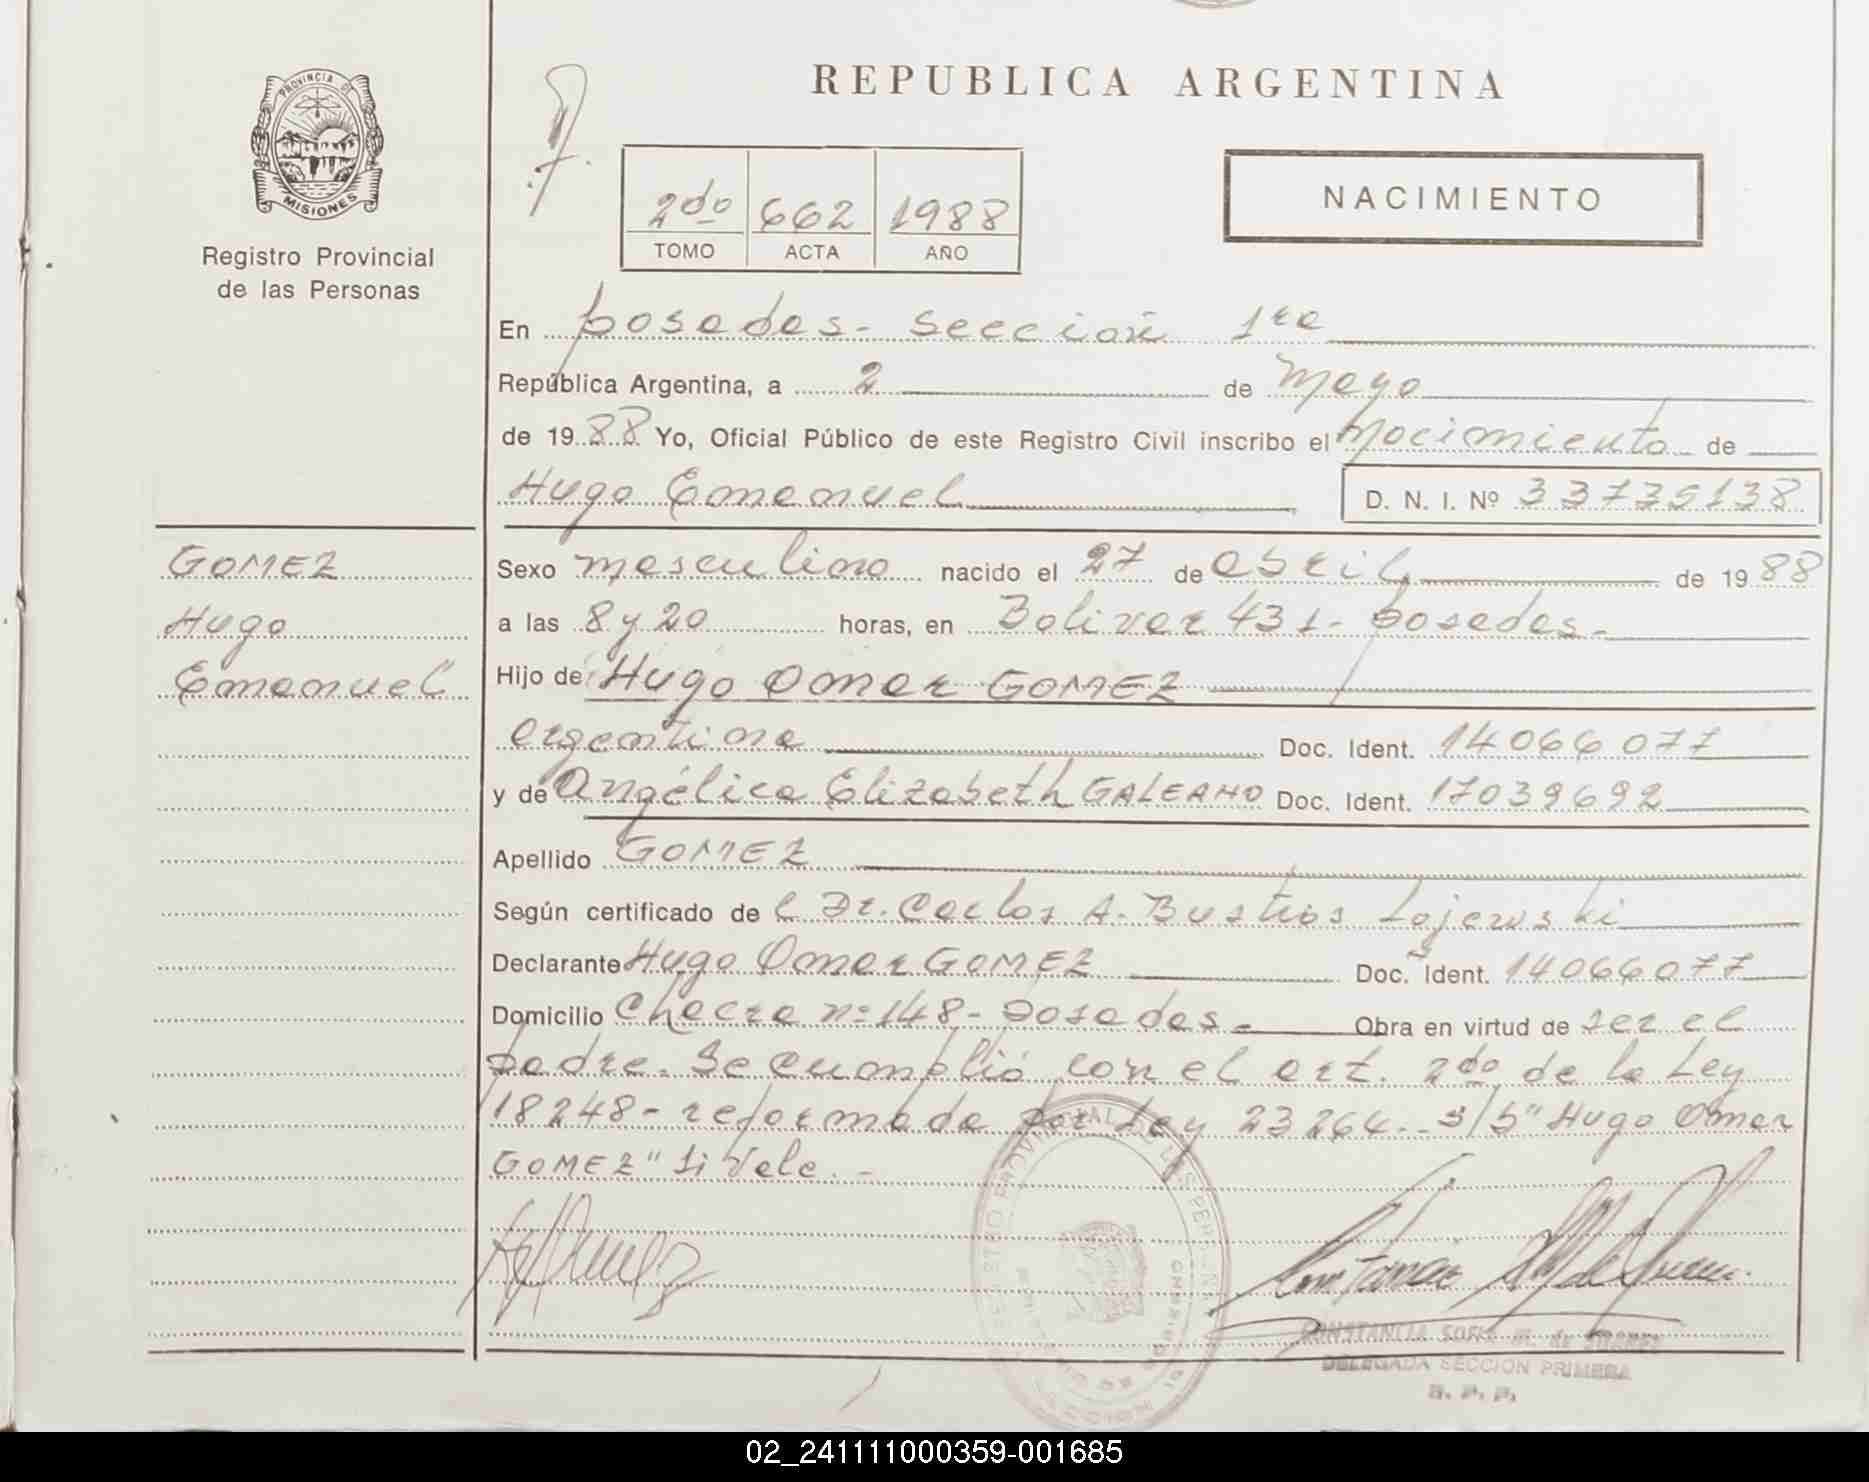 PROVINCIA DE
MISIONES
Registro Provincial
de las Personas
REPUBLICA ARGENTINA
2do 662 1988
TOMO ACTA AÑO
NACIMIENTO
En Posadas - Sección 1ra
República Argentina, a 2 de Mayo
de 1988 Yo, Oficial Público de este Registro Civil inscribo el Nacimiento de
Hugo Emanuel D. N. I. Nº 33735138
GOMEZ
Hugo
Emanuel
Sexo masculino nacido el 27 de abril de 1988
a las 8 y 20 horas, en Bolivar 431 - Posadas -
Hijo de Hugo Omar GOMEZ
argentina Doc. Ident. 14066077
y de Angélica Elizabeth GALEANO Doc. Ident. 17039692
Apellido GOMEZ
Según certificado de l Dr. Carlos A. Bustios
Declarante Hugo Omar GOMEZ Doc. Ident. 14066077
Domicilio Chacra nº 148 - Posadas - Obra en virtud de ser el
padre. Se cumplió con el art. 2do de la Ley
18248 - reformada por Ley 23264.- s/b "Hugo Omar
GOMEZ" Si Vale. -
CONSTANCIA de SUAREZ
DELEGADA SECCION PRIMERA
R. P. P.
02_241111000359-001685